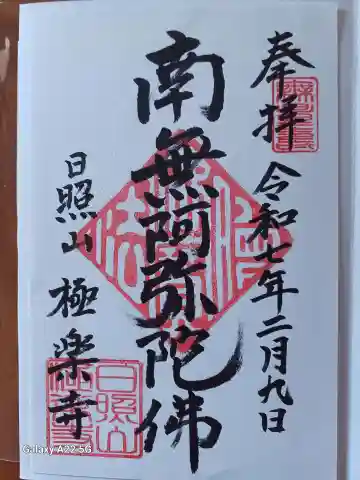 奉拝
令和七年二月九日
南無阿弥陀佛
日照山
極楽寺
日照山
Galaxy A22 5G